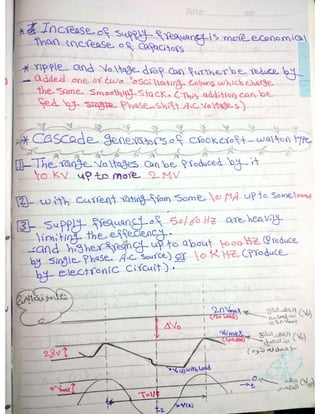 * Increase of supply frequency is more economical
than increase of capacitors
* ripple and Voltage drop can further be reduce by
added one or two oscillating columns which charge
the same smoothing stack. (This addition can be
fed by phase shift A.C voltages)
* Cascade generators of crockcroft-walton type
1- The range voltages can be produced by it
10 KV up to more 2 MV
2- with current rating from some 10 MA up to some
3- supply frequency of 50/60 HZ are heavily
limiting the effecency.
-and higher up to about 1000 HZ (Produce
by single Phase A.c source) or 10 K HZ (Produce
by electronic circuit).
2nVmax
(no load)
ΔVo
Vomax
(on load)
(Vo)
2δV
Vo(t) with load
+Vmax
T=1/f
0
t
t2